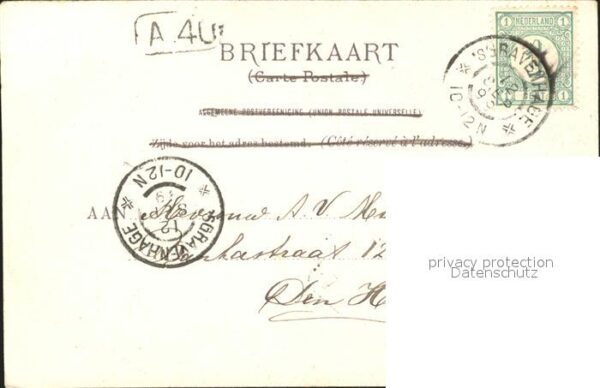 A.4U
BRIEFKAART
(Carte Postale)
ALGEMEENE POSTVEREENIGING (UNION POSTALE UNIVERSELLE)
Zijde voor het adres bestemd. (Côté réservé à l'adresse.)
1 NEDERLAND 1
'SGRAVENHAGE
10-12N
'SGRAVENHAGE
10-12N
12
AAN Mevrouw A. V.
straat 12
Den H
privacy protection
Datenschutz